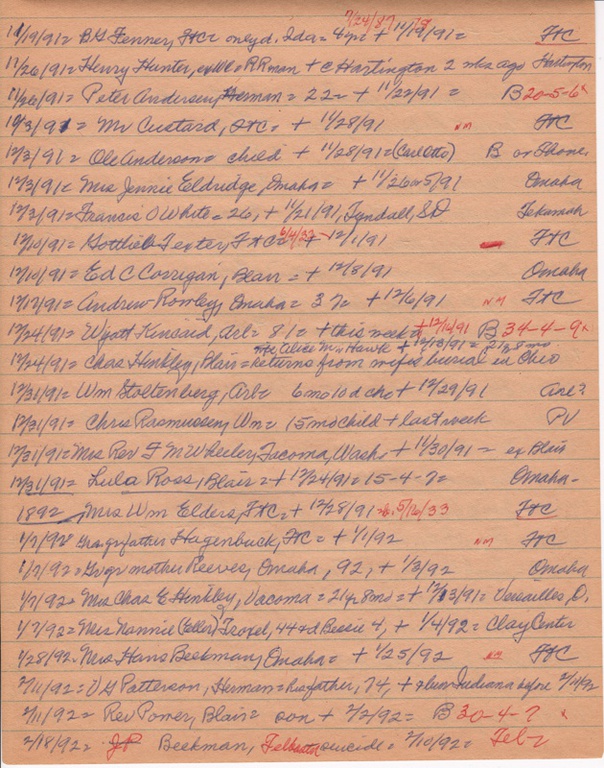 7/24/87 78
11/19/91 = B G Fenner, FtC = only d. Ida = 4 yr + 11/19/91 = FtC
11/26/91 = Henry Hunter, RRman + c Hartington 2 wks ago Hartington
11/26/91 = Peter Andersen, Herman = 22 = + 11/22/91 = B 20-5-6x
12/3/91 = Mr Custard, FtC = + 11/28/91 NM FtC
12/3/91 = Ole Anderson = child + 11/28/91 = (Carl Otto) B or
12/3/91 = Mrs Jennie Eldridge, Omaha = + 11/26 or 5/91 Omaha
12/3/91 = Francis O White = 26, + 11/21/91, Tyndall, SD Tekamah
12/10/91 = Gottlieb Texter, FtC = 6/4/32 + 12/1/91 FtC
12/10/91 = Ed C Corrigan, Blair = + 12/8/91 Omaha
12/17/91 = Andrew Rowley, Omaha = 37 = + 12/6/91 NM FtC
12/24/91 = Wyatt Kincaid, Arl = 81 = + this week + 12/16/91 B 34-4-9x
Alice M Hawk + 12/13/91 = 21, 8 mo
12/24/91 = Chas Hinkley, Blair = Returns from wife's burial in Ohio
12/31/91 = Wm Stoltenberg, Arl = 6 mo 10 d ch + 12/29/91 Arl?
12/31/91 = Chris Rasmussen, Wn = 15 mo child + last week PV
12/31/91 = Mrs Rev F M Wheeler, Tacoma, Wash. + 11/30/91 = ex Blair
12/31/91 = Lula Ross, Blair = + 12/24/91 = 15-4-7 = Omaha -
1892 Mrs Wm Elders, FtC = + 12/28/91 = 5/16/33 FtC
1/7/92 = Gra father Hagenbuck, FtC = + 1/1/92 NM FtC
1/7/92 = mother Reeves, Omaha, 92, + 1/3/92 Omaha
1/7/92 = Mrs Chas E Hinkley, Vacoma = 21, 8 mo = + 12/13/91 = Versailles, O.
1/7/92 = Mrs Nannie (Celley) Troxel, 44 + d Bessie 4, + 1/4/92 = Clay Center
1/28/92 = Mrs Hans Beekman, Omaha = + 1/25/92 NM FtC
2/11/92 = V G Patterson, Herman = his father, 74, + Indiana before 2/11/92
2/11/92 = Rev Power, Blair = son + 2/2/92 = B 30-4-7 x
2/18/92 = JP Beekman, suicide = 2/10/92 =